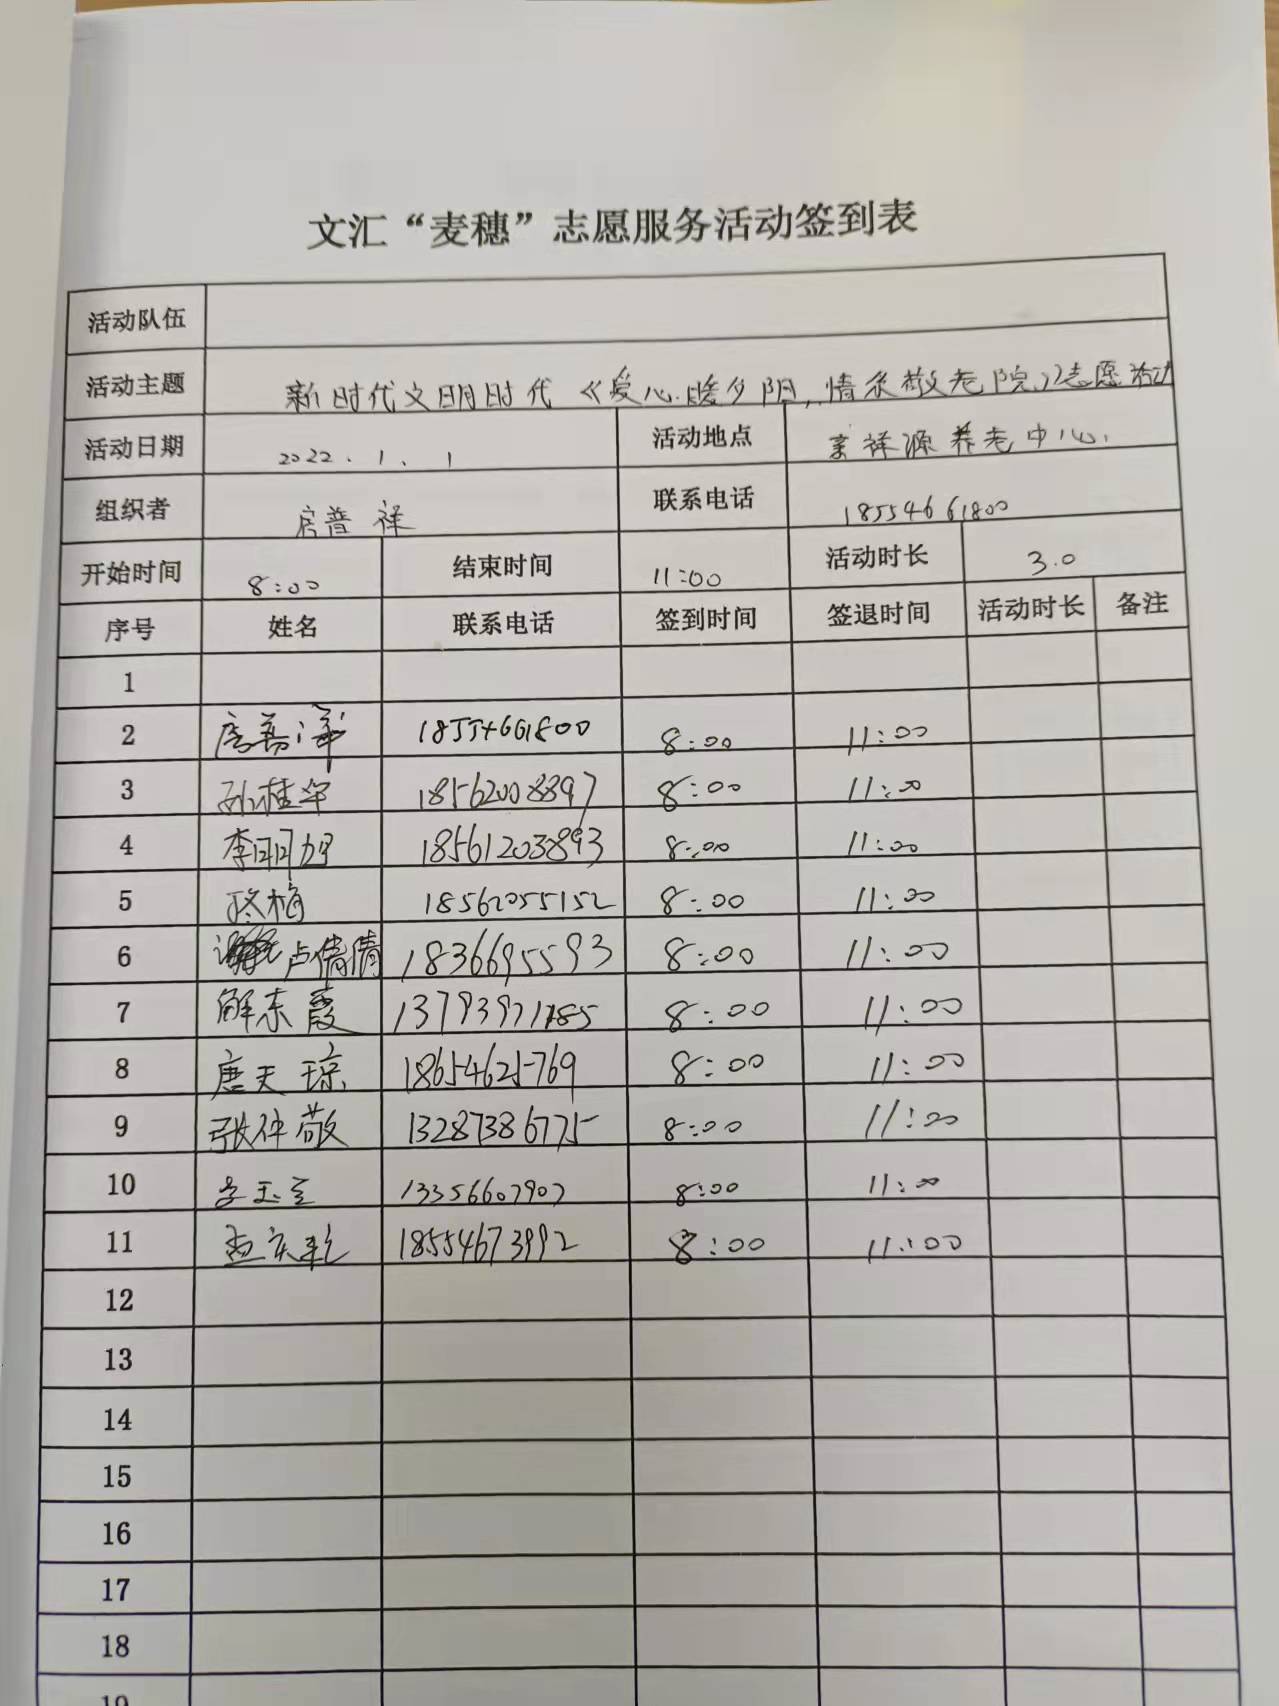 文汇“麦穗”志愿服务活动签到表
活动队伍
活动主题 新时代文明时代《爱心暖夕阳,情系敬老院》志愿活动
活动日期 2022.1.1 活动地点 祥源养老中心
组织者 房普祥 联系电话 18554661800
开始时间 8:00 结束时间 11:00 活动时长 3.0
序号 姓名 联系电话 签到时间 签退时间 活动时长 备注
1
2 18554661800 8:00 11:00
3 孙桂华 18562008897 8:00 11:00
4 李明 18561203893 8:00 11:00
5 梅 18562055152 8:00 11:00
6 卢倩倩 1836695593 8:00 11:00
7 解东霞 8:00 11:00
8 唐天琼 18654625769 8:00 11:00
9 张仲敬 13287386775 8:00 11:00
10 李玉 13356607907 8:00 11:00
11 孟庆乾 18554673992 8:00 11:00
12
13
14
15
16
17
18
19